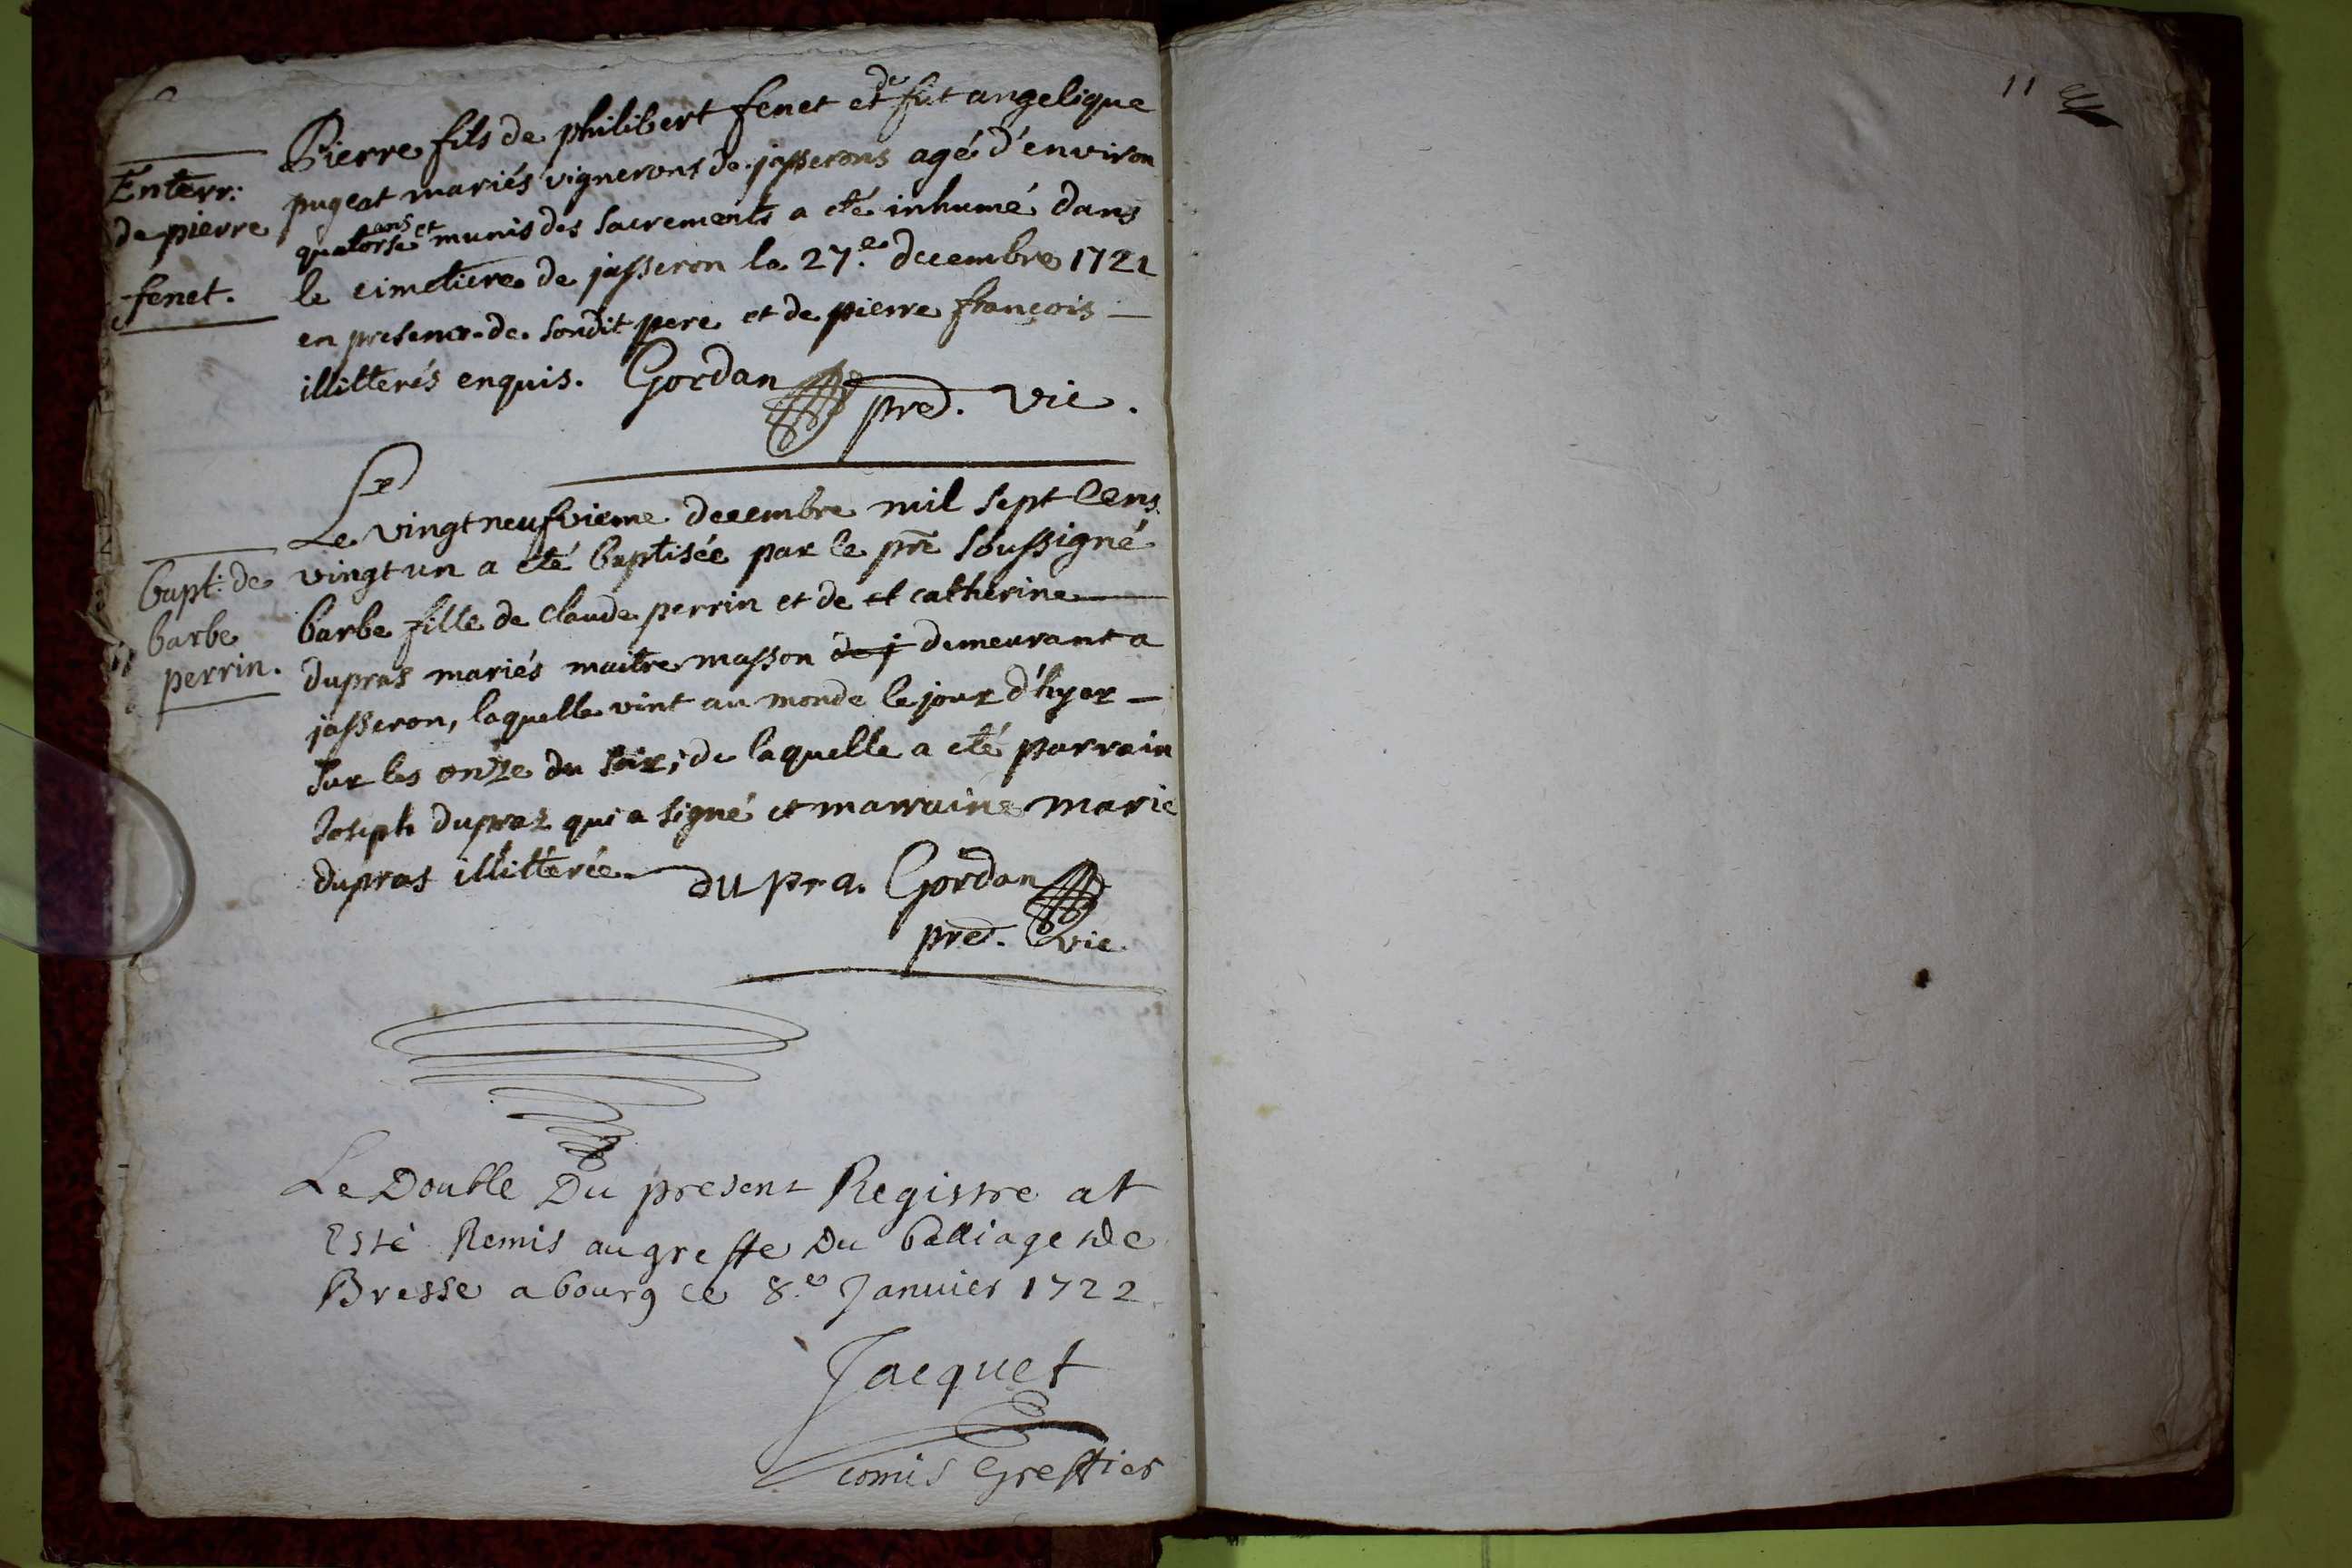 Enterr:
de pierre
fenet.
Pierre fils de philibert fenet et de fut angelique
pugeat mariés vignerons de jasserons agé d'environ
quatorse ans et munis des sacrements a eté inhumé dans
le cimetiere de jasseron le 27.e decembre 1721
en presence de sondit pere et de pierre françois —
illitterés enquis. Gordan
pre. vic.
Bapt: de
barbe
perrin.
Le vingtneufvieme decembre mil sept cens
vingt un a eté baptisée par le pre soussigné
barbe fille de claude perrin et de et catherine —
dupras mariés maitre masson de j demeurant a
jasseron, laquelle vint au monde le jour d'hyer —
sur les onze du soir; de laquelle a eté parrain
Joseph dupraz qui a signé et marraine marie
dupras illitterée. du pra. Gordan
pre. vic.
Le Double Du present Registre at
Esté Remis au greffe Du balliage de
Bresse a bourg ce 8.e Janvier 1722
Jacquet
comis Greffier
11